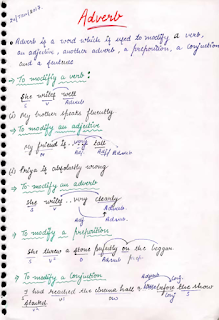 Adverb
• Adverb is a word which is used to modify a verb,
an adjective, another adverb, a preposition, a conjunction
and a sentence
→ To modify a verb:
She writes well
S V Adverb
(ii) My brother speaks fluently
→ To modify an adjective
My friend is tall
Adj
(ii) Priya is absolutely wrong
→ To modify an adverb
She writes very clearly
S V Adverb
Adverb
→ To modify a preposition
She threw a stone perfectly on the beggar
S V O Adverb prep.
→ To modify a conjunction
I had reached the cinema hall before the show
started